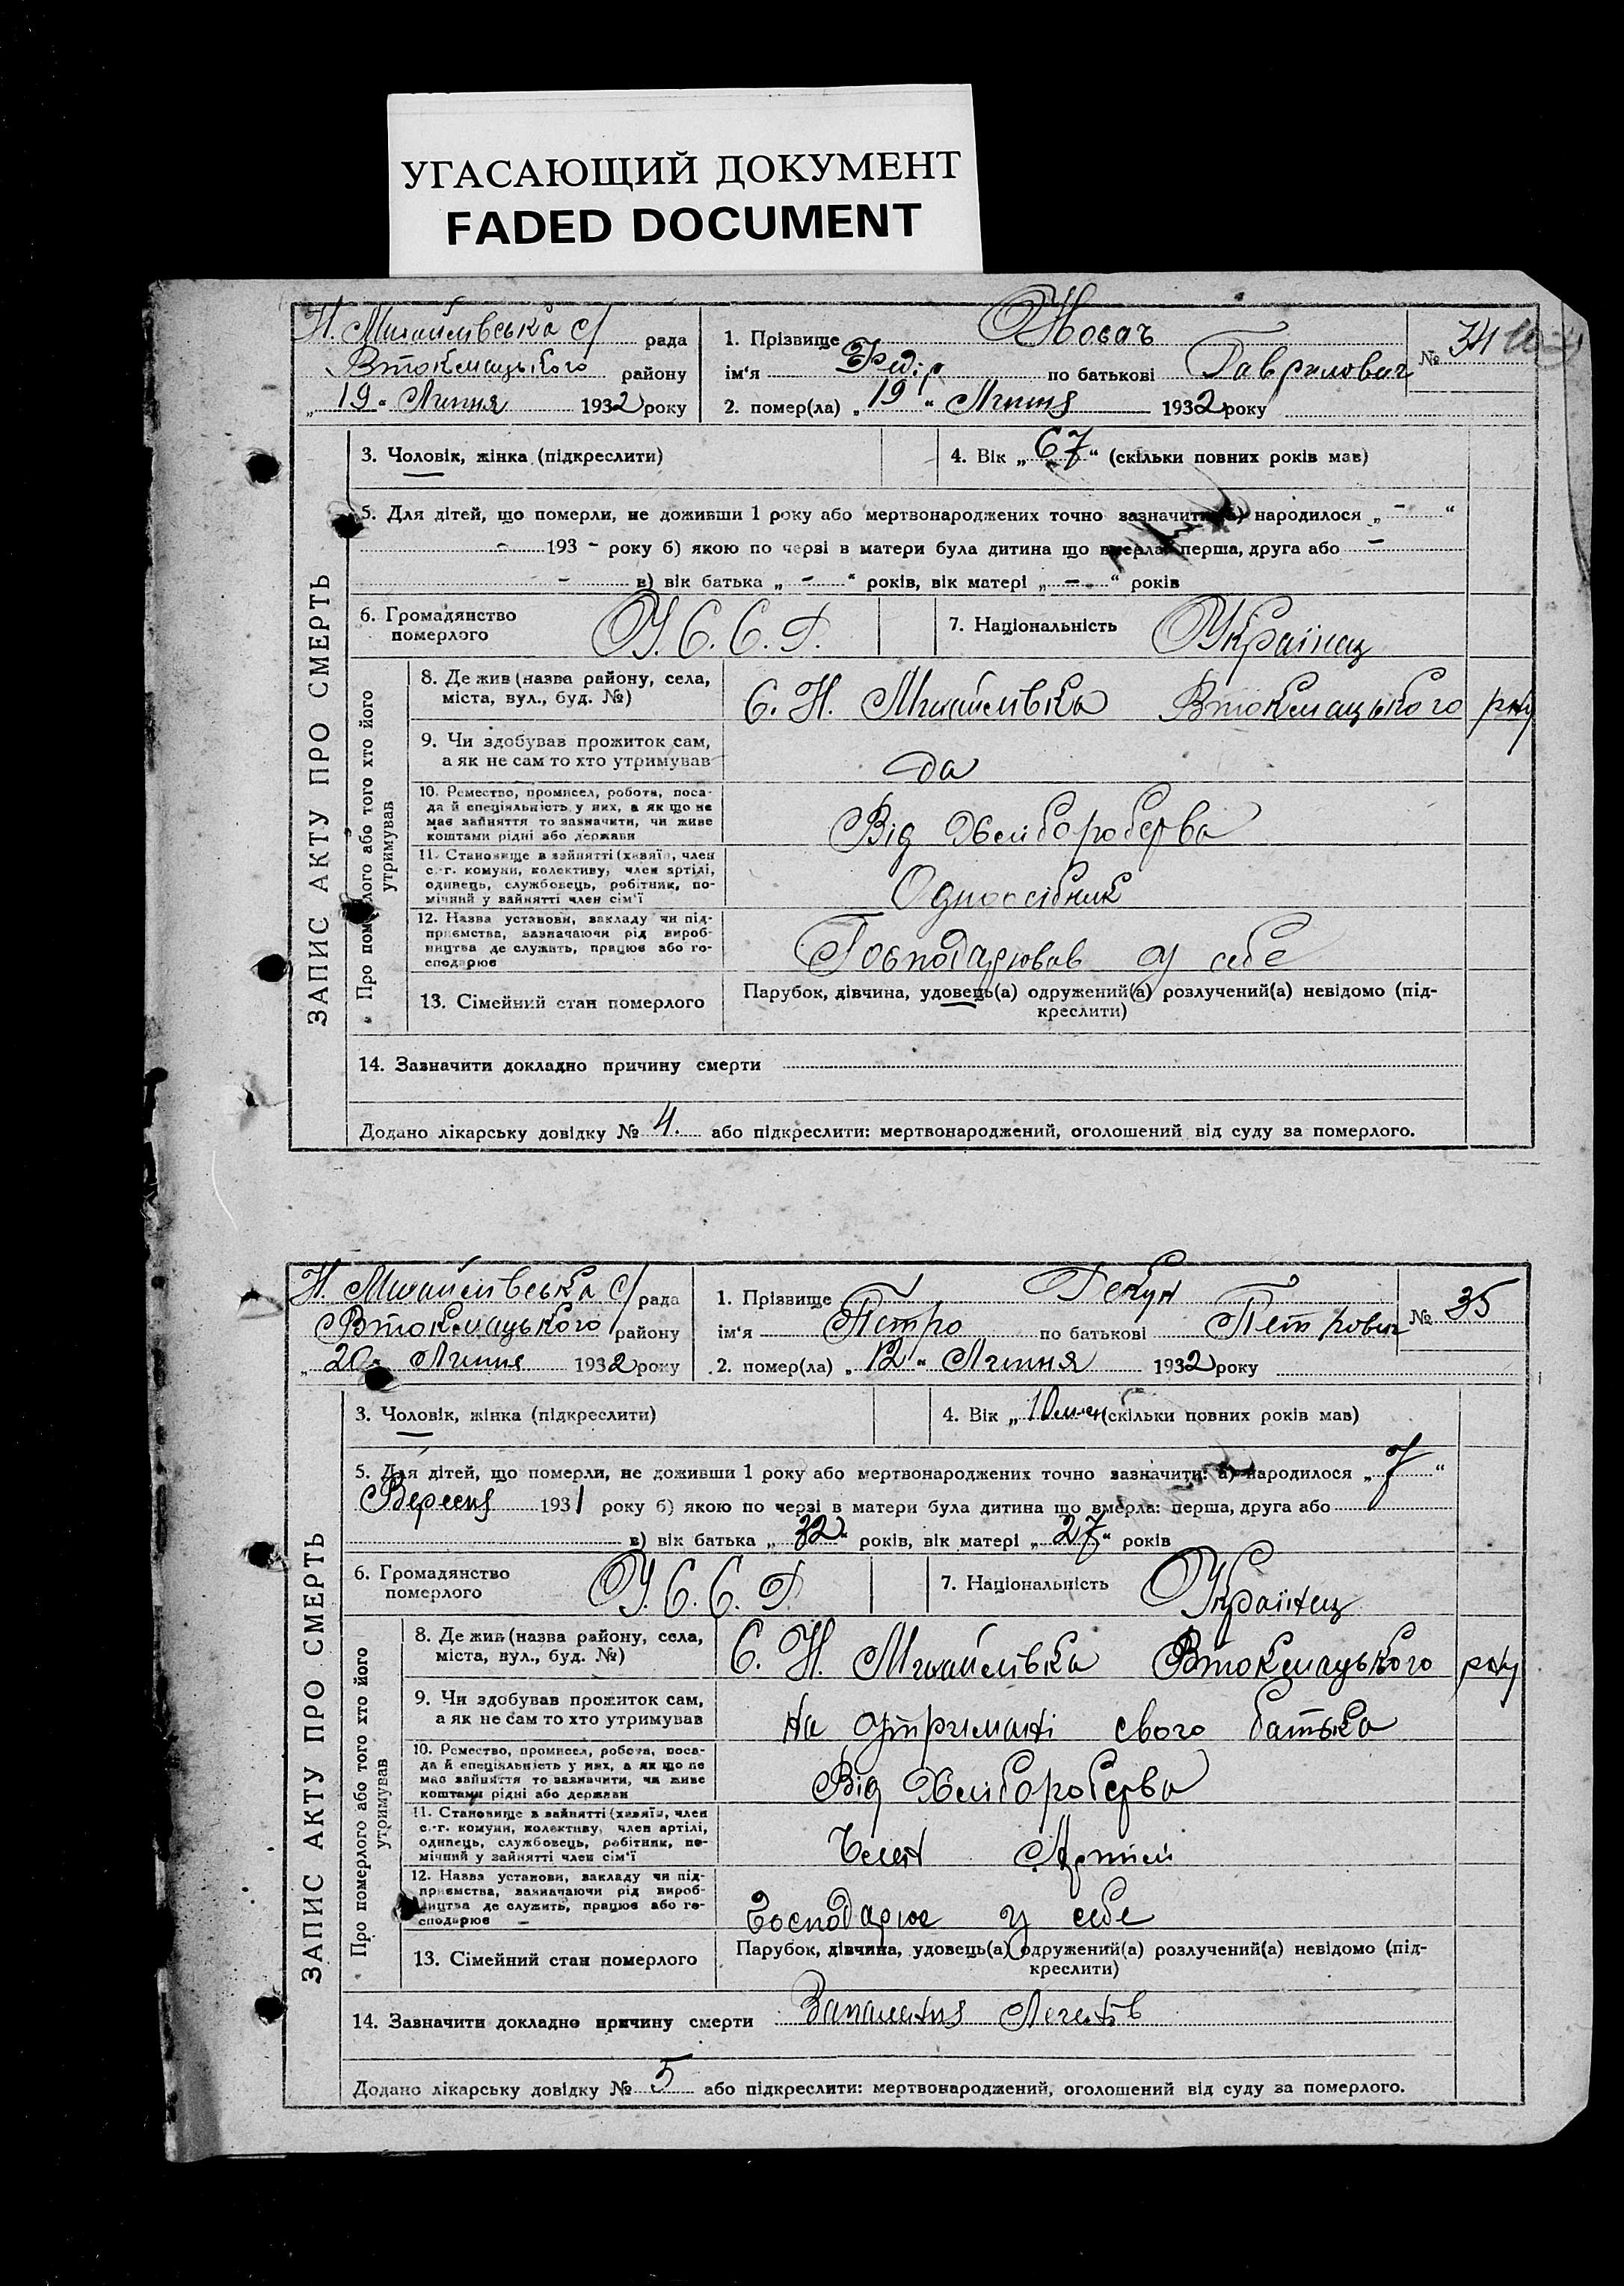 УГАСАЮЩИЙ ДОКУМЕНТ
FADED DOCUMENT
Н. Михайлівська с/ рада
Втокмацького району
„ 19 “ Липня 1932 року
1. Прізвище Носач
ім'я Федір по батькові Гаврилович
2. помер(ла) „ 19 “ Липня 1932 року
№ 34
3. Чоловік, жінка (підкреслити)
4. Вік „ 67 “ (скільки повних років мав)
5. Для дітей, що померли, не доживши 1 року або мертвонароджених точно зазначити: а) народилося „ - “
- 193 - року б) якою по черзі в матери була дитина що вмерла: перша, друга або -
- в) вік батька „ - “ років, вік матері „ - “ років
6. Громадянство
померлого
У.С.С.Р.
7. Національність Українец
ЗАПИС АКТУ ПРО СМЕРТЬ
Про померлого або того хто його
утримував
8. Де жив (назва району, села,
міста, вул., буд. №)
С. Н. Михайлівка Втокмацького р-ну
9. Чи здобував прожиток сам,
а як не сам то хто утримував
да
10. Ремество, промисел, робота, поса-
да й спеціяльність у них, а як що не
має зайняття то зазначити, чи живе
коштами рідні або держави
Від Хліборобства
11. Становище в зайнятті (хазяїн, член
с.-г. комуни, колективу, член артілі,
одинець, службовець, робітник, по-
мічний у зайнятті член сім'ї
Одноосібник
12. Назва установи, закладу чи під-
приємства, зазначаючи рід вироб-
ництва де служить, працює або го-
сподарює
Господарював у себе
13. Сімейний стан померлого
Парубок, дівчина, удовець(а) одружений(а) розлучений(а) невідомо (під-
креслити)
14. Зазначити докладно причину смерти
Додано лікарську довідку № 4. або підкреслити: мертвонароджений, оголошений від суду за померлого.
Н. Михайлівська с/ рада
Втокмацького району
„ 20 “ Липня 1932 року
1. Прізвище
ім'я Петро по батькові Петрович
2. помер(ла) „ 12 “ Липня 1932 року
№ 35
3. Чоловік, жінка (підкреслити)
4. Вік „ 10 (скільки повних років мав)
5. Для дітей, що померли, не доживши 1 року або мертвонароджених точно зазначити: а) народилося „ 7 “
Вересня 1931 року б) якою по черзі в матери була дитина що вмерла: перша, друга або
в) вік батька „ 32 “ років, вік матері „ 27 “ років
6. Громадянство
померлого
У.С.С.Р.
7. Національність Українец
ЗАПИС АКТУ ПРО СМЕРТЬ
Про померлого або того хто його
утримував
8. Де жив (назва району, села,
міста, вул., буд. №)
С. Н. Михайлівка Втокмацького р-ну
9. Чи здобував прожиток сам,
а як не сам то хто утримував
На утримані свого батька
10. Ремество, промисел, робота, поса-
да й спеціяльність у них, а як що не
має зайняття то зазначити, чи живе
коштами рідні або держави
Від Хліборобства
11. Становище в зайнятті (хазяїн, член
с.-г. комуни, колективу, член артілі,
одинець, службовець, робітник, по-
мічний у зайнятті член сім'ї
Член Артілі
12. Назва установи, закладу чи під-
приємства, зазначаючи рід вироб-
ництва де служить, працює або го-
сподарює
Господарює у себе
13. Сімейний стан померлого
Парубок, дівчина, удовець(а) одружений(а) розлучений(а) невідомо (під-
креслити)
14. Зазначити докладно причину смерти Запалення Легенів
Додано лікарську довідку № 5 або підкреслити: мертвонароджений, оголошений від суду за померлого.